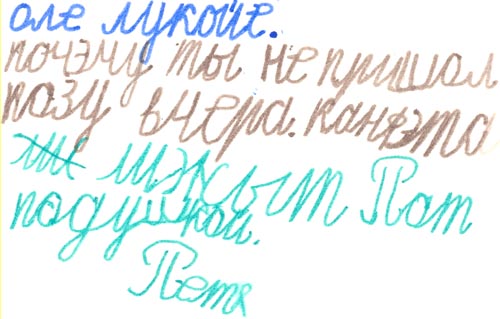 оле лукойе.
почэму ты не пришол
разу вчера. канфэта
лижыт Пот
падушкой.
Петя